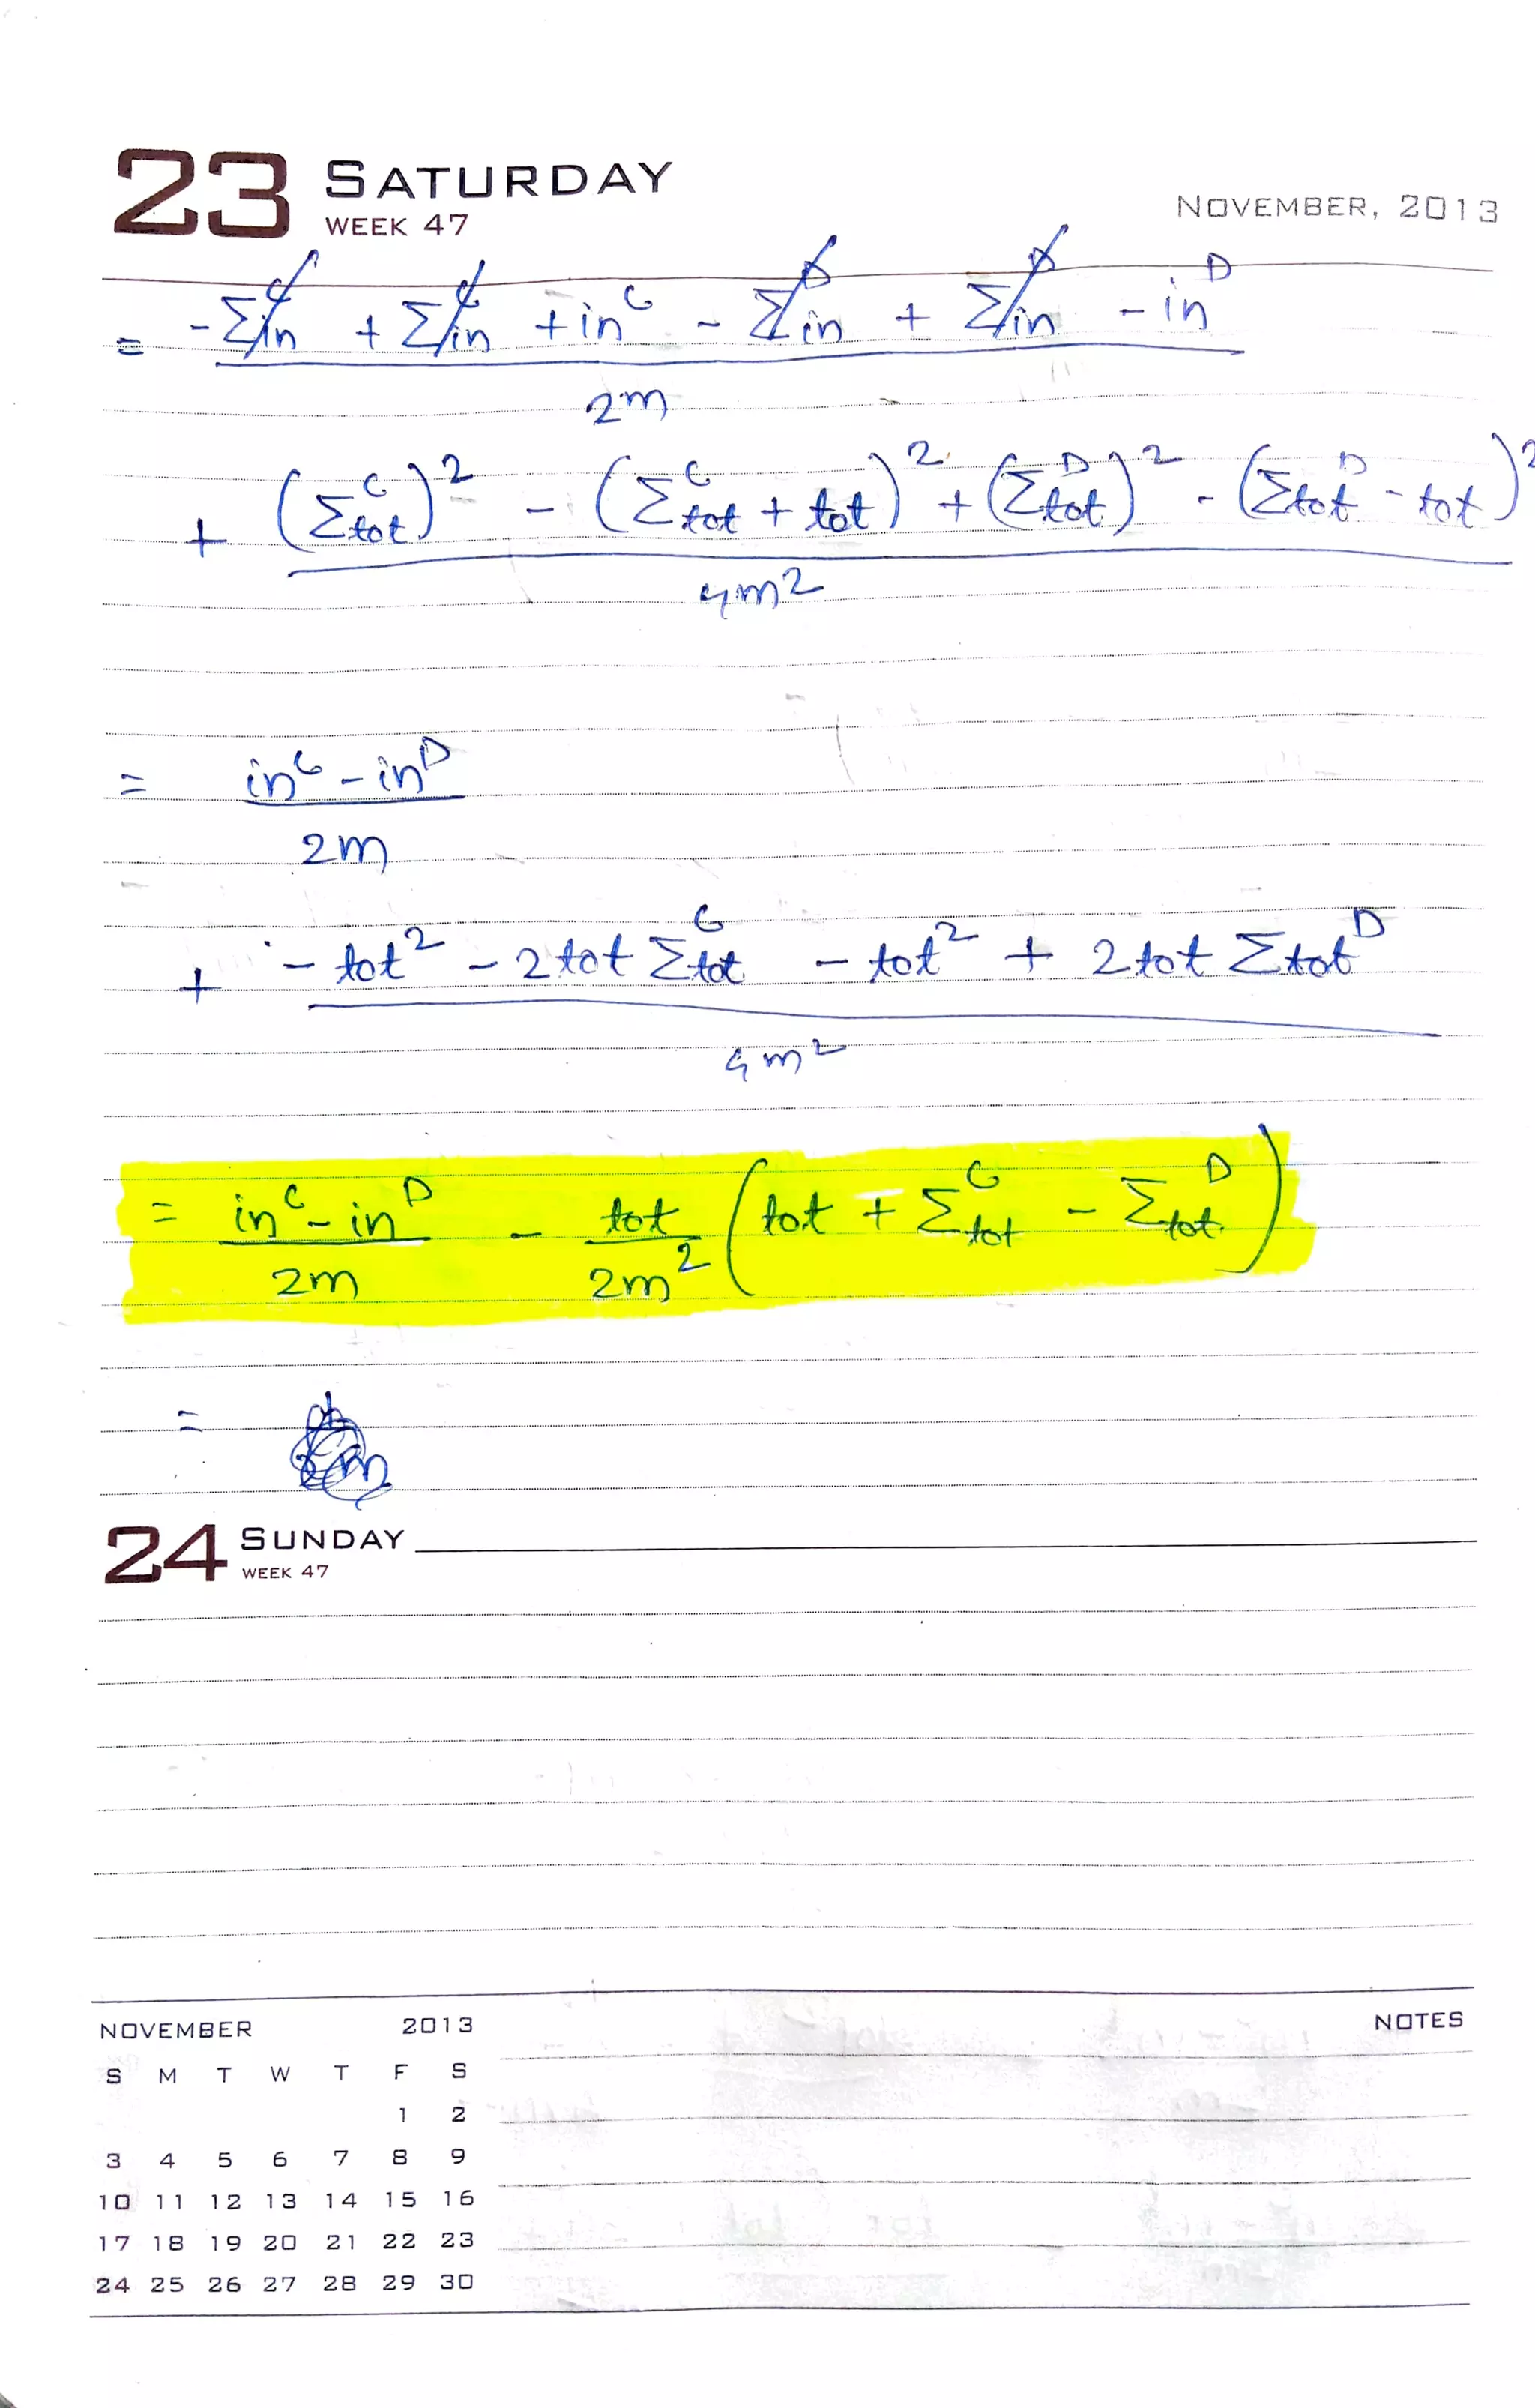 23 SATURDAY
WEEK 47
NOVEMBER, 2013
= -Σin^C + Σin^C + in^C - Σin^D + Σin^D - in^D
2m
+ (Σtot^C)^2 - (Σtot^C + tot)^2 + (Σtot^D)^2 - (Σtot^D - tot)^2
4m^2
= in^C - in^D
2m
+ - tot^2 - 2tot Σtot^C - tot^2 + 2tot Σtot^D
4m^2
= in^C - in^D - tot (tot + Σtot^C - Σtot^D)
2m 2m^2
=
24 SUNDAY
WEEK 47
NOVEMBER 2013
NOTES
S M T W T F S
1 2
3 4 5 6 7 8 9
10 11 12 13 14 15 16
17 18 19 20 21 22 23
24 25 26 27 28 29 30